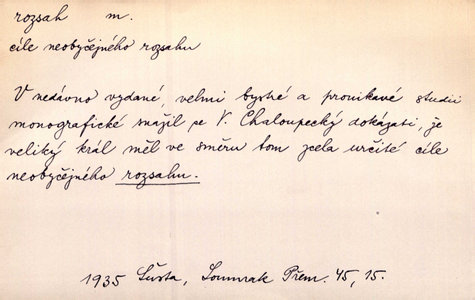 rozsah m.
cíle neobyčejného rozsahu
V nedávno vydané, velmi bystré a pronikavé studii
monografické snažil se V. Chaloupecký dokázati, že
veliký král měl ve směru tom zcela určité cíle
neobyčejného rozsahu.
1935 Šusta, Soumrak Přem. 45, 15.